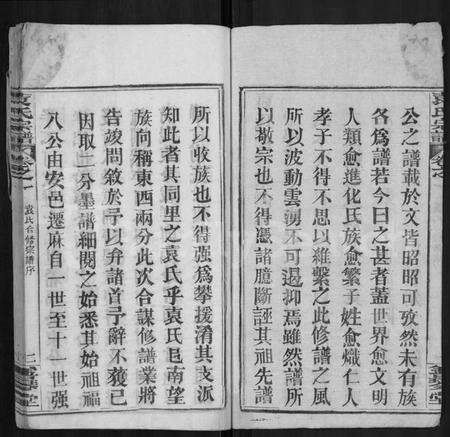 公之譜載於文皆昭昭可攷然未有族
各爲譜若今日之甚者蓋世界愈文明
人類愈進化氏族愈繁子姓愈熾仁人
孝子不得不思以維繫之此修譜之風
所以波動雲湧不可遏抑焉雖然譜所
以敬宗也不得憑諸臆斷誣其祖先譜
所以收族也不得强爲攀援淆其支派
知此者其同里之袁氏乎袁氏邑南望
族向稱東西兩分此次合謀修譜業將
告竣問敘於予以弁諸首予辭不獲已
因取二分墨譜細閱之始悉其始祖福
八公由安邑遷麻自一世至十一世强
袁氏宗譜 卷之一
袁氏合修宗譜序
二
堂